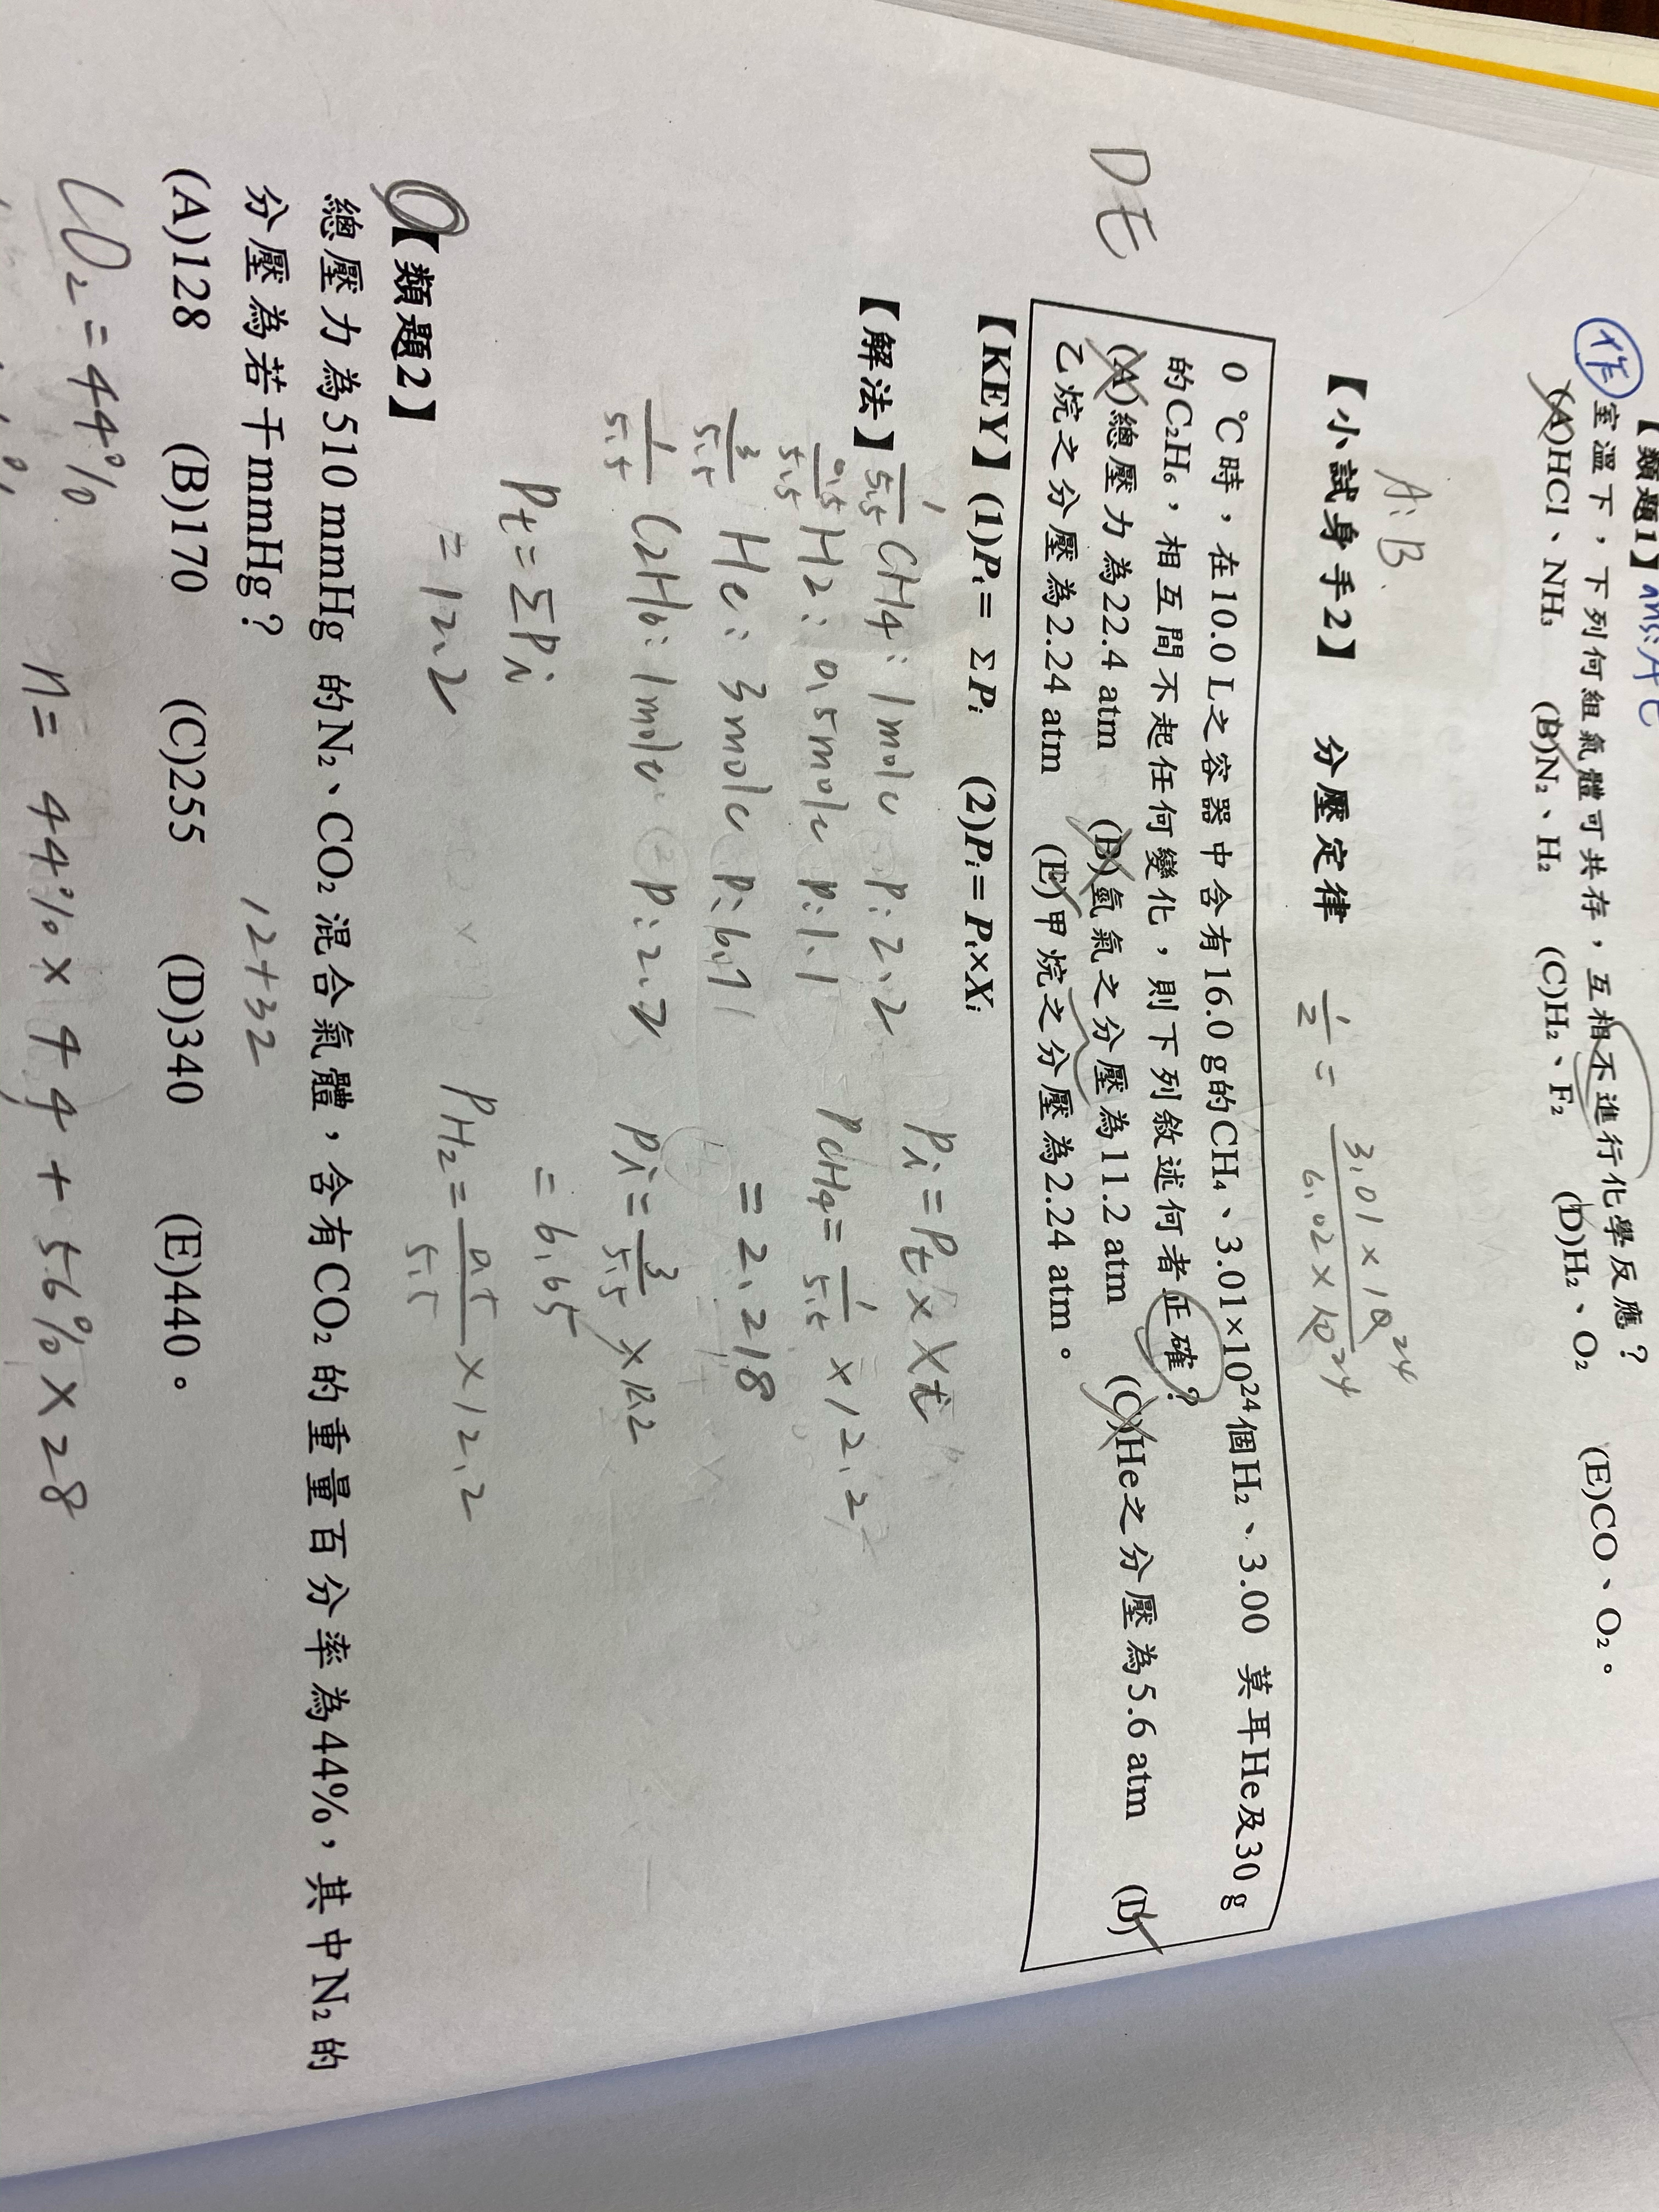 【類題1】 ans:AE
作 室溫下，下列何組氣體可共存，互相不進行化學反應？
(A)HCl、NH₃ (B)N₂、H₂ (C)H₂、F₂ (D)H₂、O₂ (E)CO、O₂。
A: B.
【小試身手2】 分壓定律
1/2 = 3.01×10²⁴ / 6.02×10²⁴
0 ℃時，在10.0 L之容器中含有16.0 g的CH₄、3.01×10²⁴個H₂、3.00 莫耳He及30 g
的C₂H₆，相互間不起任何變化，則下列敘述何者正確？
(A)總壓力為22.4 atm (B)氫氣之分壓為11.2 atm (C)He之分壓為5.6 atm (D)
乙烷之分壓為2.24 atm (E)甲烷之分壓為2.24 atm。
DE
【KEY】(1)Pₜ= ΣPᵢ (2)Pᵢ= Pₜ×Xᵢ
【解法】
1/5.5 CH4: 1mole P: 2.2
0.5/5.5 H2: 0.5mole P: 1.1
3/5.5 He: 3mole P: 6.71
1/5.5 C2H6: 1mole P: 2.2
Pt = ΣPi
= 12.2
Pi = Pt × Xt
PCH4 = 1/5.5 × 12.2
= 2.218
Pi = 3/5.5 × 12.2
= 6.65
PH2 = 0.5/5.5 × 12.2
【類題2】
總壓力為510 mmHg 的N₂、CO₂ 混合氣體，含有CO₂ 的重量百分率為44%，其中N₂ 的
分壓為若干mmHg？
12+32
(A)128 (B)170 (C)255 (D)340 (E)440。
CO₂ = 44%
n = 44% × 44 + 56% × 28